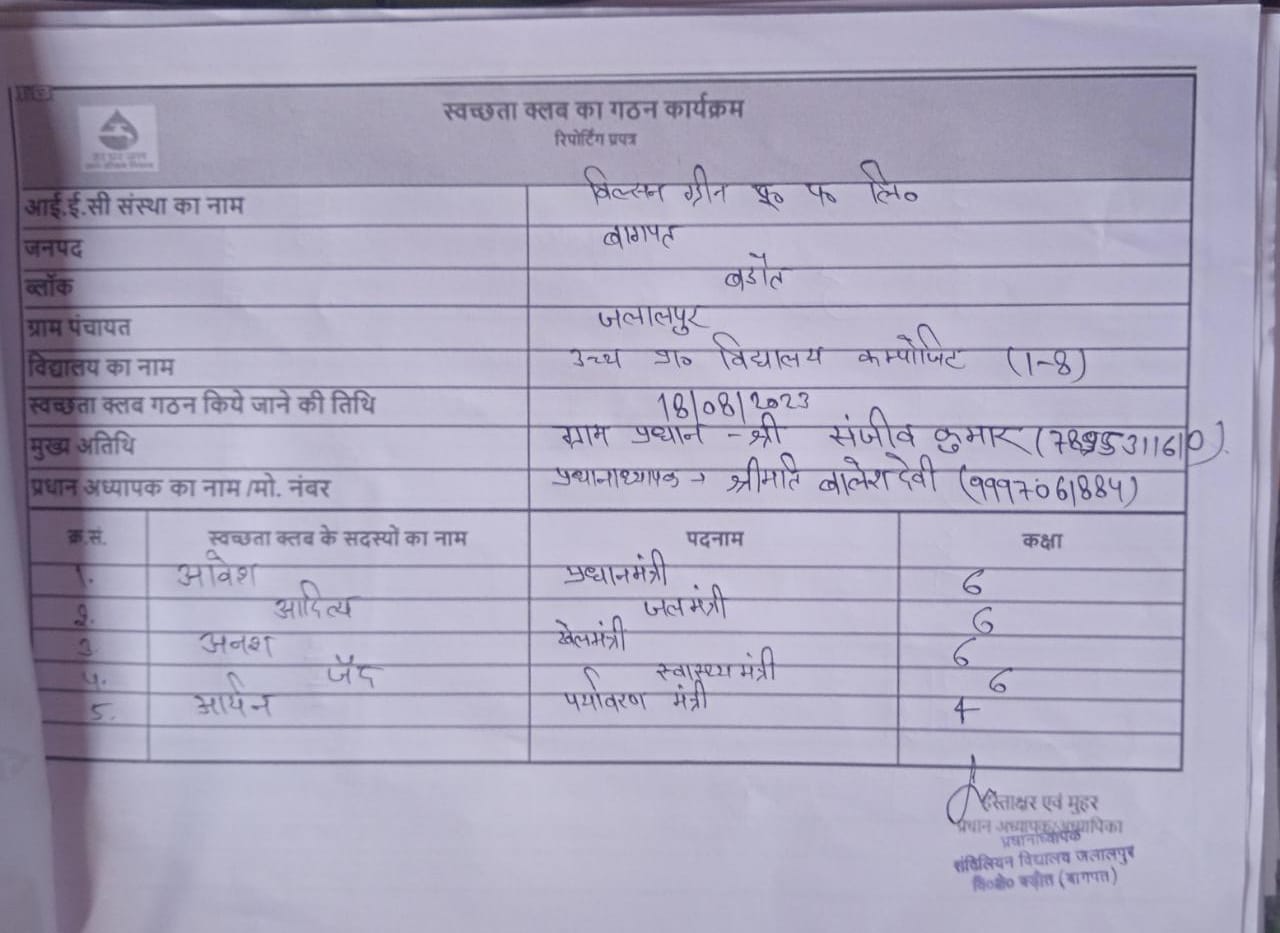 स्वच्छता क्लब का गठन कार्यक्रम
रिपोर्टिंग प्रपत्र
हर घर जल
आई.ई.सी संस्था का नाम विल्सन ग्रीन प्रू० फ० लि०
जनपद बागपत
ब्लॉक बडौत
ग्राम पंचायत जलालपुर
विद्यालय का नाम उच्च प्रा० विद्यालय कम्पोजिट (1-8)
स्वच्छता क्लब गठन किये जाने की तिथि 18/08/2023
मुख्य अतिथि ग्राम प्रधान - श्री संजीव कुमार
प्रधान अध्यापक का नाम /मो. नंबर प्रधानाध्यापक → श्रीमति बालेश देवी (9997061884)
क्र.सं. स्वच्छता क्लब के सदस्यों का नाम पदनाम कक्षा
१. आवेश प्रधानमंत्री 6
२. आदित्य जलमंत्री 6
3. अनश खेलमंत्री 6
५. जैद स्वास्थ्य मंत्री 6
5. आर्यन पर्यावरण मंत्री 4
हस्ताक्षर एवं मुहर
प्रधान अध्यापक/अध्यापिका
प्रधानाध्यापक
संविलियन विद्यालय जलालपुर
वि०क्षे० बड़ौत (बागपत)